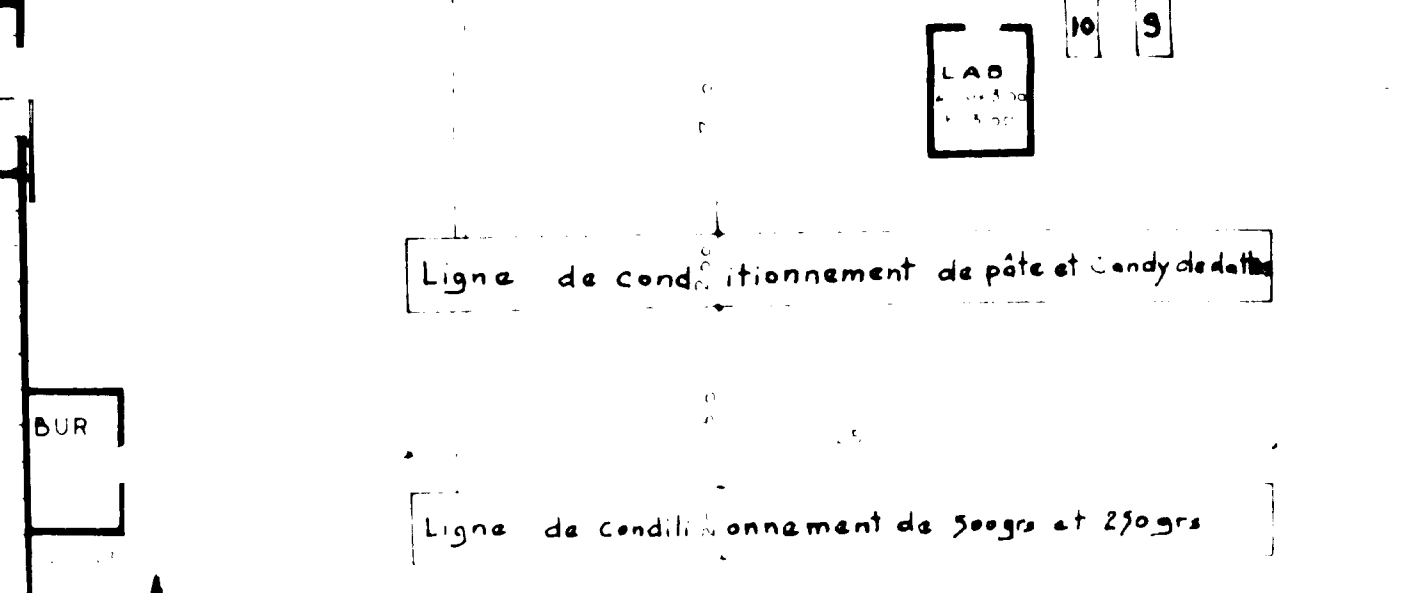 10 9
LAB
Ligne de conditionnement de pâte et Candy de dattes
BUR
Ligne de conditionnement de 500grs et 250grs